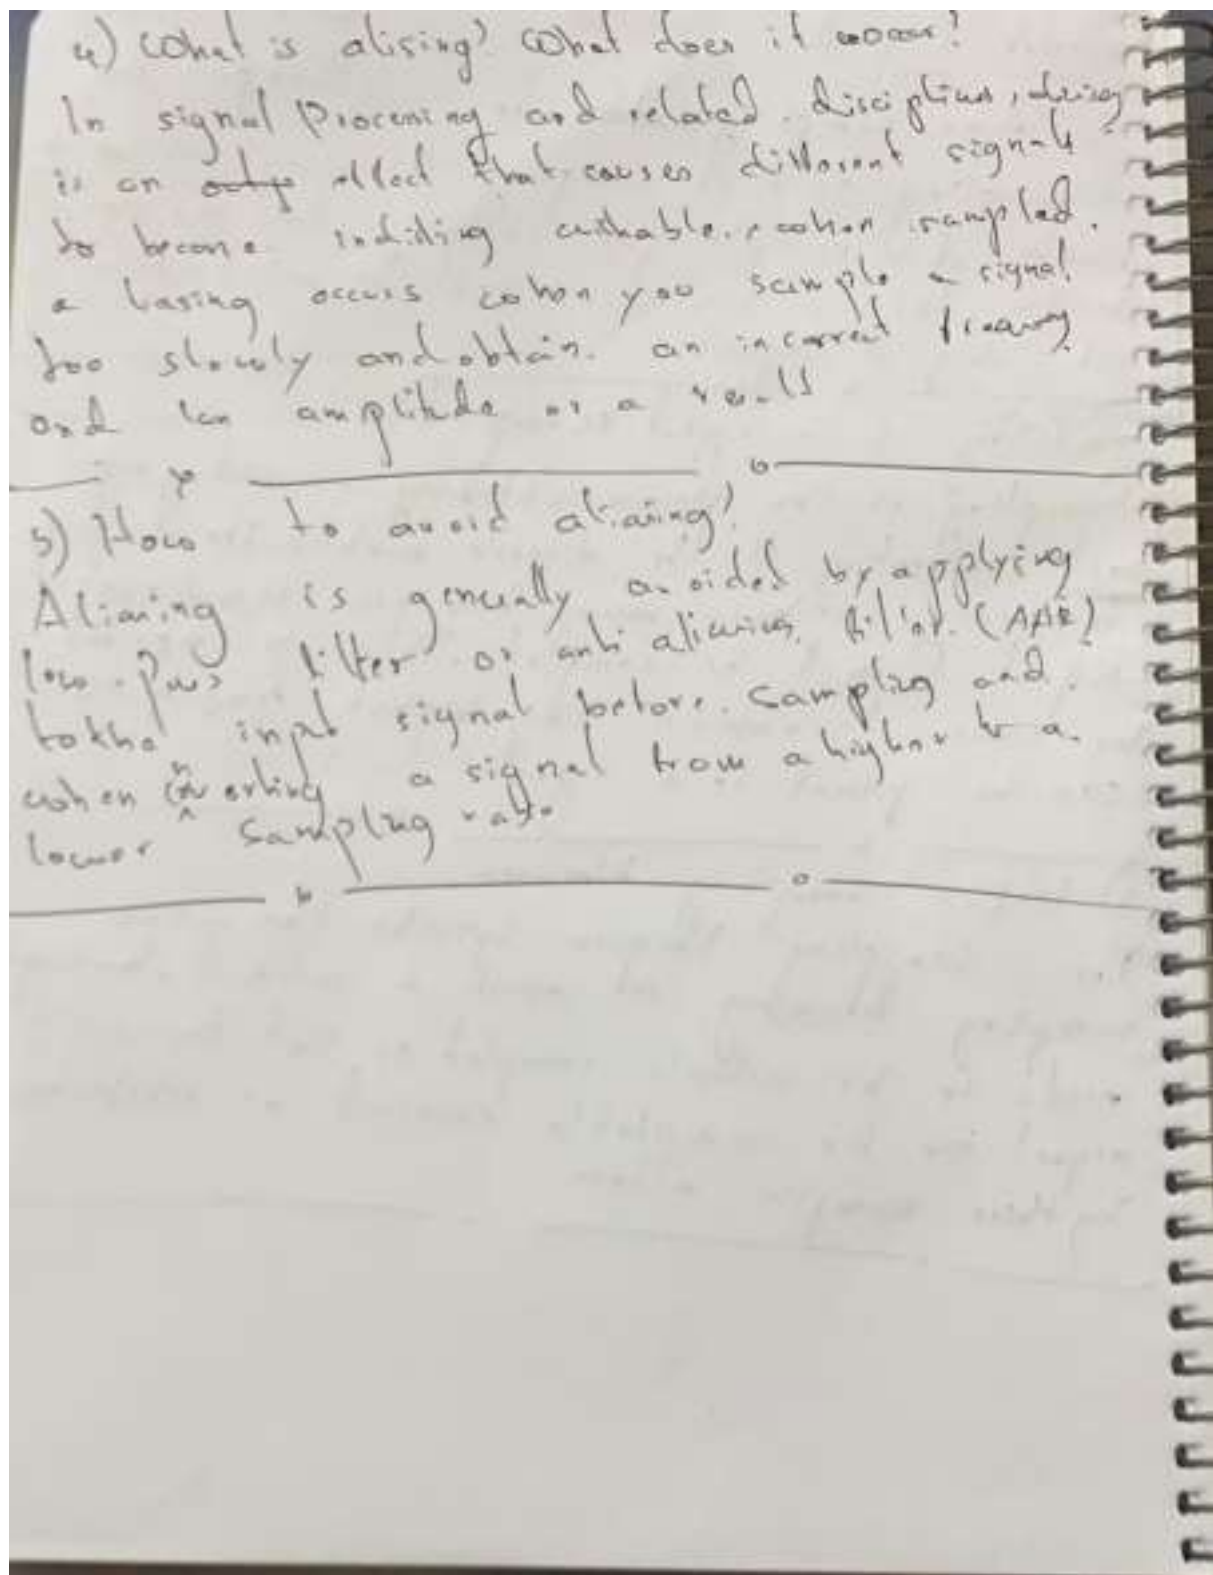 4) What is alising? What does it occur?
In signal Processing and related disciplines, alising
is an effect that causes different signals
to become indisting cuithable, when sampled.
a liasing occurs when you sample a signal
too slowly and obtain an incorrect
and amplitude as a result
5) How to avoid aliasing?
Aliasing is generally avoided by applying
low-Pass filter or anti aliasing filter (AAF)
to the input signal before sampling and
when converting a signal from a higher to a
lower sampling rate